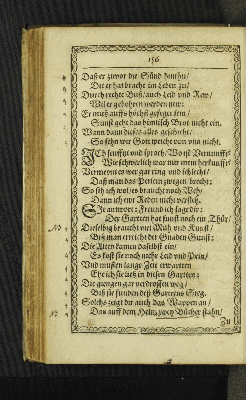 156
Daß er zuvor die Sünd
Die er hat bracht im Leben zu/
Durch rechte Buß/ auch Leid und Rew/
Wil er gebohren werden new:
Er muß auffs höchst gefeget seyn/
Sunst geht das himlisch Brot nicht ein.
Wann dann dieses alles geschicht/
So sehn wir Gott weicht von uns nicht.
ICh seufftzt und sprach/ Wo ist Vernunfft
Wie schwerlich war mir mein
Vermeynt es wer gar ring und schlecht/
Daß man das Perlein zwegen brecht:
So sih ich wol/ es braucht noch Weh
Dann ich ein Reden nicht versteh.
SIe antwort: Freund ich sage dir:
Der Garten hat sunst noch ein Thür/
Dieselbig braucht viel Müh und Kunst/
Biß man erreicht der Gnaden Gunst:
Die Alten kamen daselbst ein/
Es kost sie noch mehr Leid und Pein/
Und musten lange Zeit erwarten
Ehe ich sie ließ in diesen Garten:
Die giengen gar verdrossen weg/
Biß sie funden deß Gartens Steg.
Solchs zeigt dir auch das Wappen an/
Das auff dem zwey Bücher stahn/
Zu